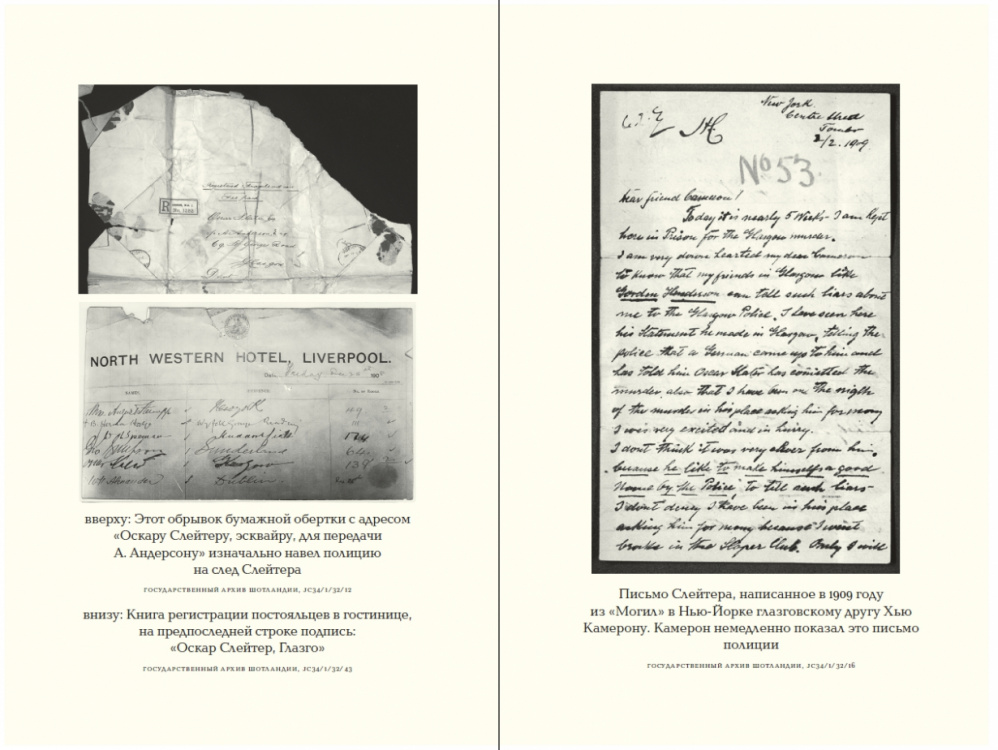 Oscar Slater Esq
69 St Georges Road
Glasgow
NORTH WESTERN HOTEL, LIVERPOOL.
Sunderland
Oscar Slater Glasgow
Dublin
вверху: Этот обрывок бумажной обертки с адресом
«Оскару Слейтеру, эсквайру, для передачи
А. Андерсону» изначально навел полицию
на след Слейтера
ГОСУДАРСТВЕННЫЙ АРХИВ ШОТЛАНДИИ, JC34/1/32/12
внизу: Книга регистрации постояльцев в гостинице,
на предпоследней строке подпись:
«Оскар Слейтер, Глазго»
ГОСУДАРСТВЕННЫЙ АРХИВ ШОТЛАНДИИ, JC34/1/32/43
New York.
Centre Street
Tombs
2/2. 1909.
No 53
Dear friend Cameron!
Today it is nearly 5 Weeks I am kept
here in Prison for the Glasgow murder.
I am very down hearted my dear Cameron
to know that my friends in Glasgow like
Gordon Henderson can tell such liars about
me to the Glasgow Police. I have seen here
his statement he made in Glasgow, telling the
police that a German came up to him and
has told him Oscar Slater has comitted the
murder also that I have been on the night
of the murder in his place asking him for money
I was very excited and in hurry.
I dont think it was very clever from him,
because he like to make himself a good
name by the Police, to tell such liars
I don't deney I have been in his place
asking him for money because I went
broke in the Sloper Club. Only I will
Письмо Слейтера, написанное в 1909 году
из «Могил» в Нью-Йорке глазговскому другу Хью
Камерону. Камерон немедленно показал это письмо
полиции
ГОСУДАРСТВЕННЫЙ АРХИВ ШОТЛАНДИИ, JC34/1/32/16